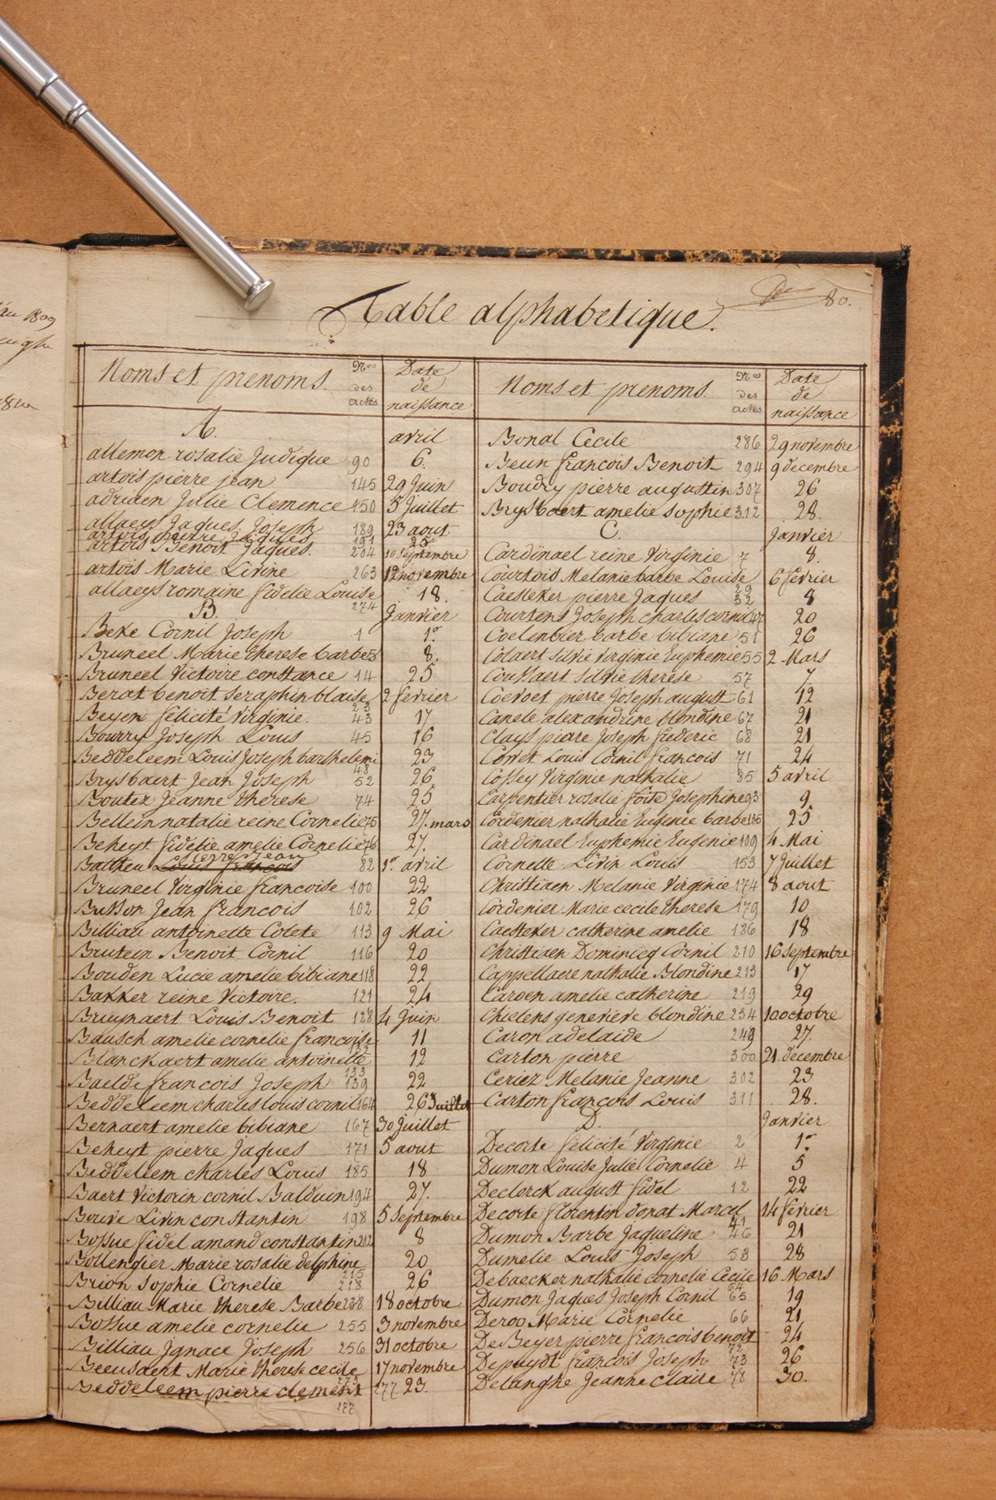 80.
Table alphabetique.
Noms et prenoms
Nos des actes
Date de naissance
A.
avril
allemon rosalie Judique 90 6.
artois pierre jean 145 29 Juin
adriaen Julie Clemence 150 5 Juillet
allaeys Jaques Joseph 189 23 aout
artois pierre Jaques 191 25
artois Benoit Jaques. 204 10 septembre
artois Marie Livine 263 12 novembre
allaeys romaine fidelie Louise 274 18.
B.
Janvier
Beke Cornil Joseph 1 1r.
Bruneel Marie therese barbe 8.
Bruneel Victoire constance 14 25
Berat benoit seraphin blaise 2 fevrier
Beyen felicité Virginie. 43 17
Bourry Joseph Louis 45 16
Beddeleem Louis Joseph barthelemi 48 23
Brysbaert Jean Joseph 52 26
Boutez Jeanne therese 74 25
Bellein natalie reine Cornelie 75 27. mars
Beheyt fidelie amelie Cornelie 76 27.
Batheu 82 1r avril
Bruneel Virginie francoise 100 22
Busson Jean francois 102 26
Billiau antoinette Colete 113 9 Mai
Brutein Benoit Cornil 116 20
Bouden Lucie amelie bibiane 118 22
Bakker reine Victoire. 121 24
Brueynaert Louis Benoit 128 4 Juin
Bausch amelie cornelie francoise 11
Blanckaert amelie antoinette 133 12
Baelde francois Joseph 139 22
Beddeleem charles louis cornil 164 26 Juillet
Bernaert amelie bibiane 167 30 Juillet
Beheyt pierre Jaques 171 5 aout
Beddeleem charles Louis 185 18
Baert Victorin cornil Balduin 194 27.
Bouve Livin constantin 198 5 Septembre
Bossue fidel amand constantin 212 8
Bollengier Marie rosalie delphine 215 20
Brion Sophie Cornelie 218 26
Billiau Marie therese Barbe 238 18 octobre
Bossue amelie cornelie 255 3 novembre
Billiau Ignace Joseph 256 31 octobre
Beeusaert Marie therese cecile 17 novembre
Beddeleem pierre clement 277 23.
Noms et prenoms
Nos des actes
Date de naissance
Bonal Cecile 286 29 novembre
Beun francois Benoit 294 9 decembre
Boudry pierre augustin 307 26
Brysbaert amelie sophie 312 28.
C.
Janvier
Cardinael reine Virginie 7 8.
Courtois Melanie barbe Louise 29 6 fevrier
Caesteker pierre Jaques 32 8
Courtens Joseph charles cornil 47 20
Coelenbier barbe bibiane 51 26
Colaert silvie Virginie Euphemie 55 2 Mars
Coussaert silvie therese 57 7
Coevoet pierre Joseph august 61 12
Canele alexandrine blondine 67 21
Clays pierre Joseph frederic 68 21
Corset Louis Cornil francois 71 24
Cossey Virginie nathalie 85 5 avril
Carpentier rosalie foite Josephine 93 9
Cordenier nathalie Eugenie barbe 25
Cardinael Euphemie Eugenie 109 4 Mai
Cornette Livin Louis 153 7 Juillet
Christiaen Melanie Virginie 174 8 aout
Cordenier Marie cecile therese 179 10
Caesteker catherine amelie 186 18
Christiaen Dominicq Cornil 210 16 Septembre
Cappellaere nathalie Blondine 213 17
Caroen amelie catherine 219 29
Chielens genevieve blondine 234 10 octobre
Caron adelaide 249 27.
Carton pierre 300 21 decembre
Ceriez Melanie Jeanne 302 23
Carton francois Louis 311 28.
D.
Janvier
Decorte felicité Virginie 2 1r
Dumon Louise Julie Cornelie 4 5
Declerck august fidel 12 22
Decorte florentin donat Marcel 41 14 fevrier
Dumon Barbe Jaqueline 46 21
Dumelie Louis Joseph 53 28
Debaecker nathalie cornelie Cecile 16 Mars
Dumon Jaques Joseph Cornil 65 19
Deroo Marie Cornelie 66 21
De Beyer pierre francois benoit 72 24
Depuydt francois Joseph 73 26
Delanghe Jeanne claire 78 30.